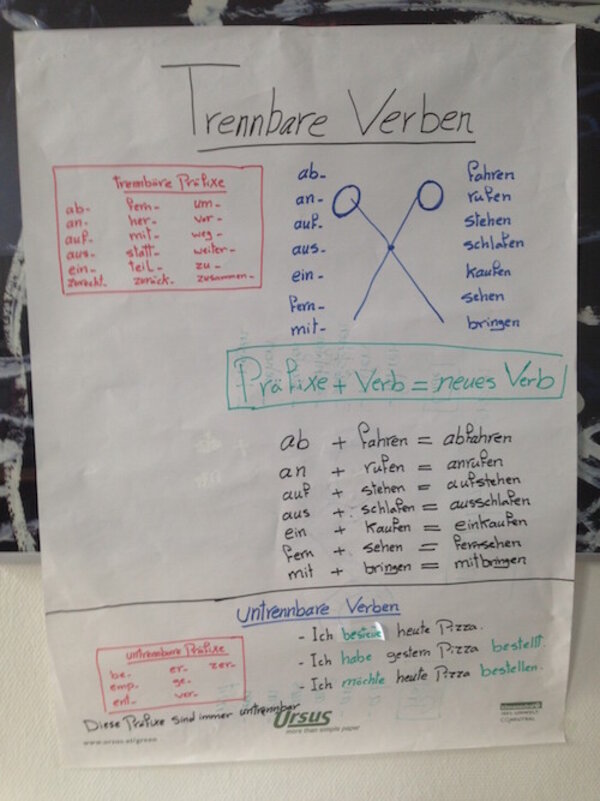 Trennbare Verben
trennbare Präfixe
ab- fern- um-
an- her- vor-
auf- mit- weg-
aus- statt- weiter-
ein- teil- zu-
zurecht- zurück- zusammen-
ab- fahren
an- rufen
auf- stehen
aus- schlafen
ein- kaufen
fern- sehen
mit- bringen
Präfixe + Verb = neues Verb
ab + fahren = abfahren
an + rufen = anrufen
auf + stehen = aufstehen
aus + schlafen = ausschlafen
ein + kaufen = einkaufen
fern + sehen = fernsehen
mit + bringen = mitbringen
untrennbare Verben
untrennbare Präfixe
be- er- zer-
emp- ge-
ent- ver-
Diese Präfixe sind immer untrennbar
- Ich bestelle heute Pizza.
- Ich habe gestern Pizza bestellt.
- Ich möchte heute Pizza bestellen.
Ursus
more than simple paper
www.ursus.at/green